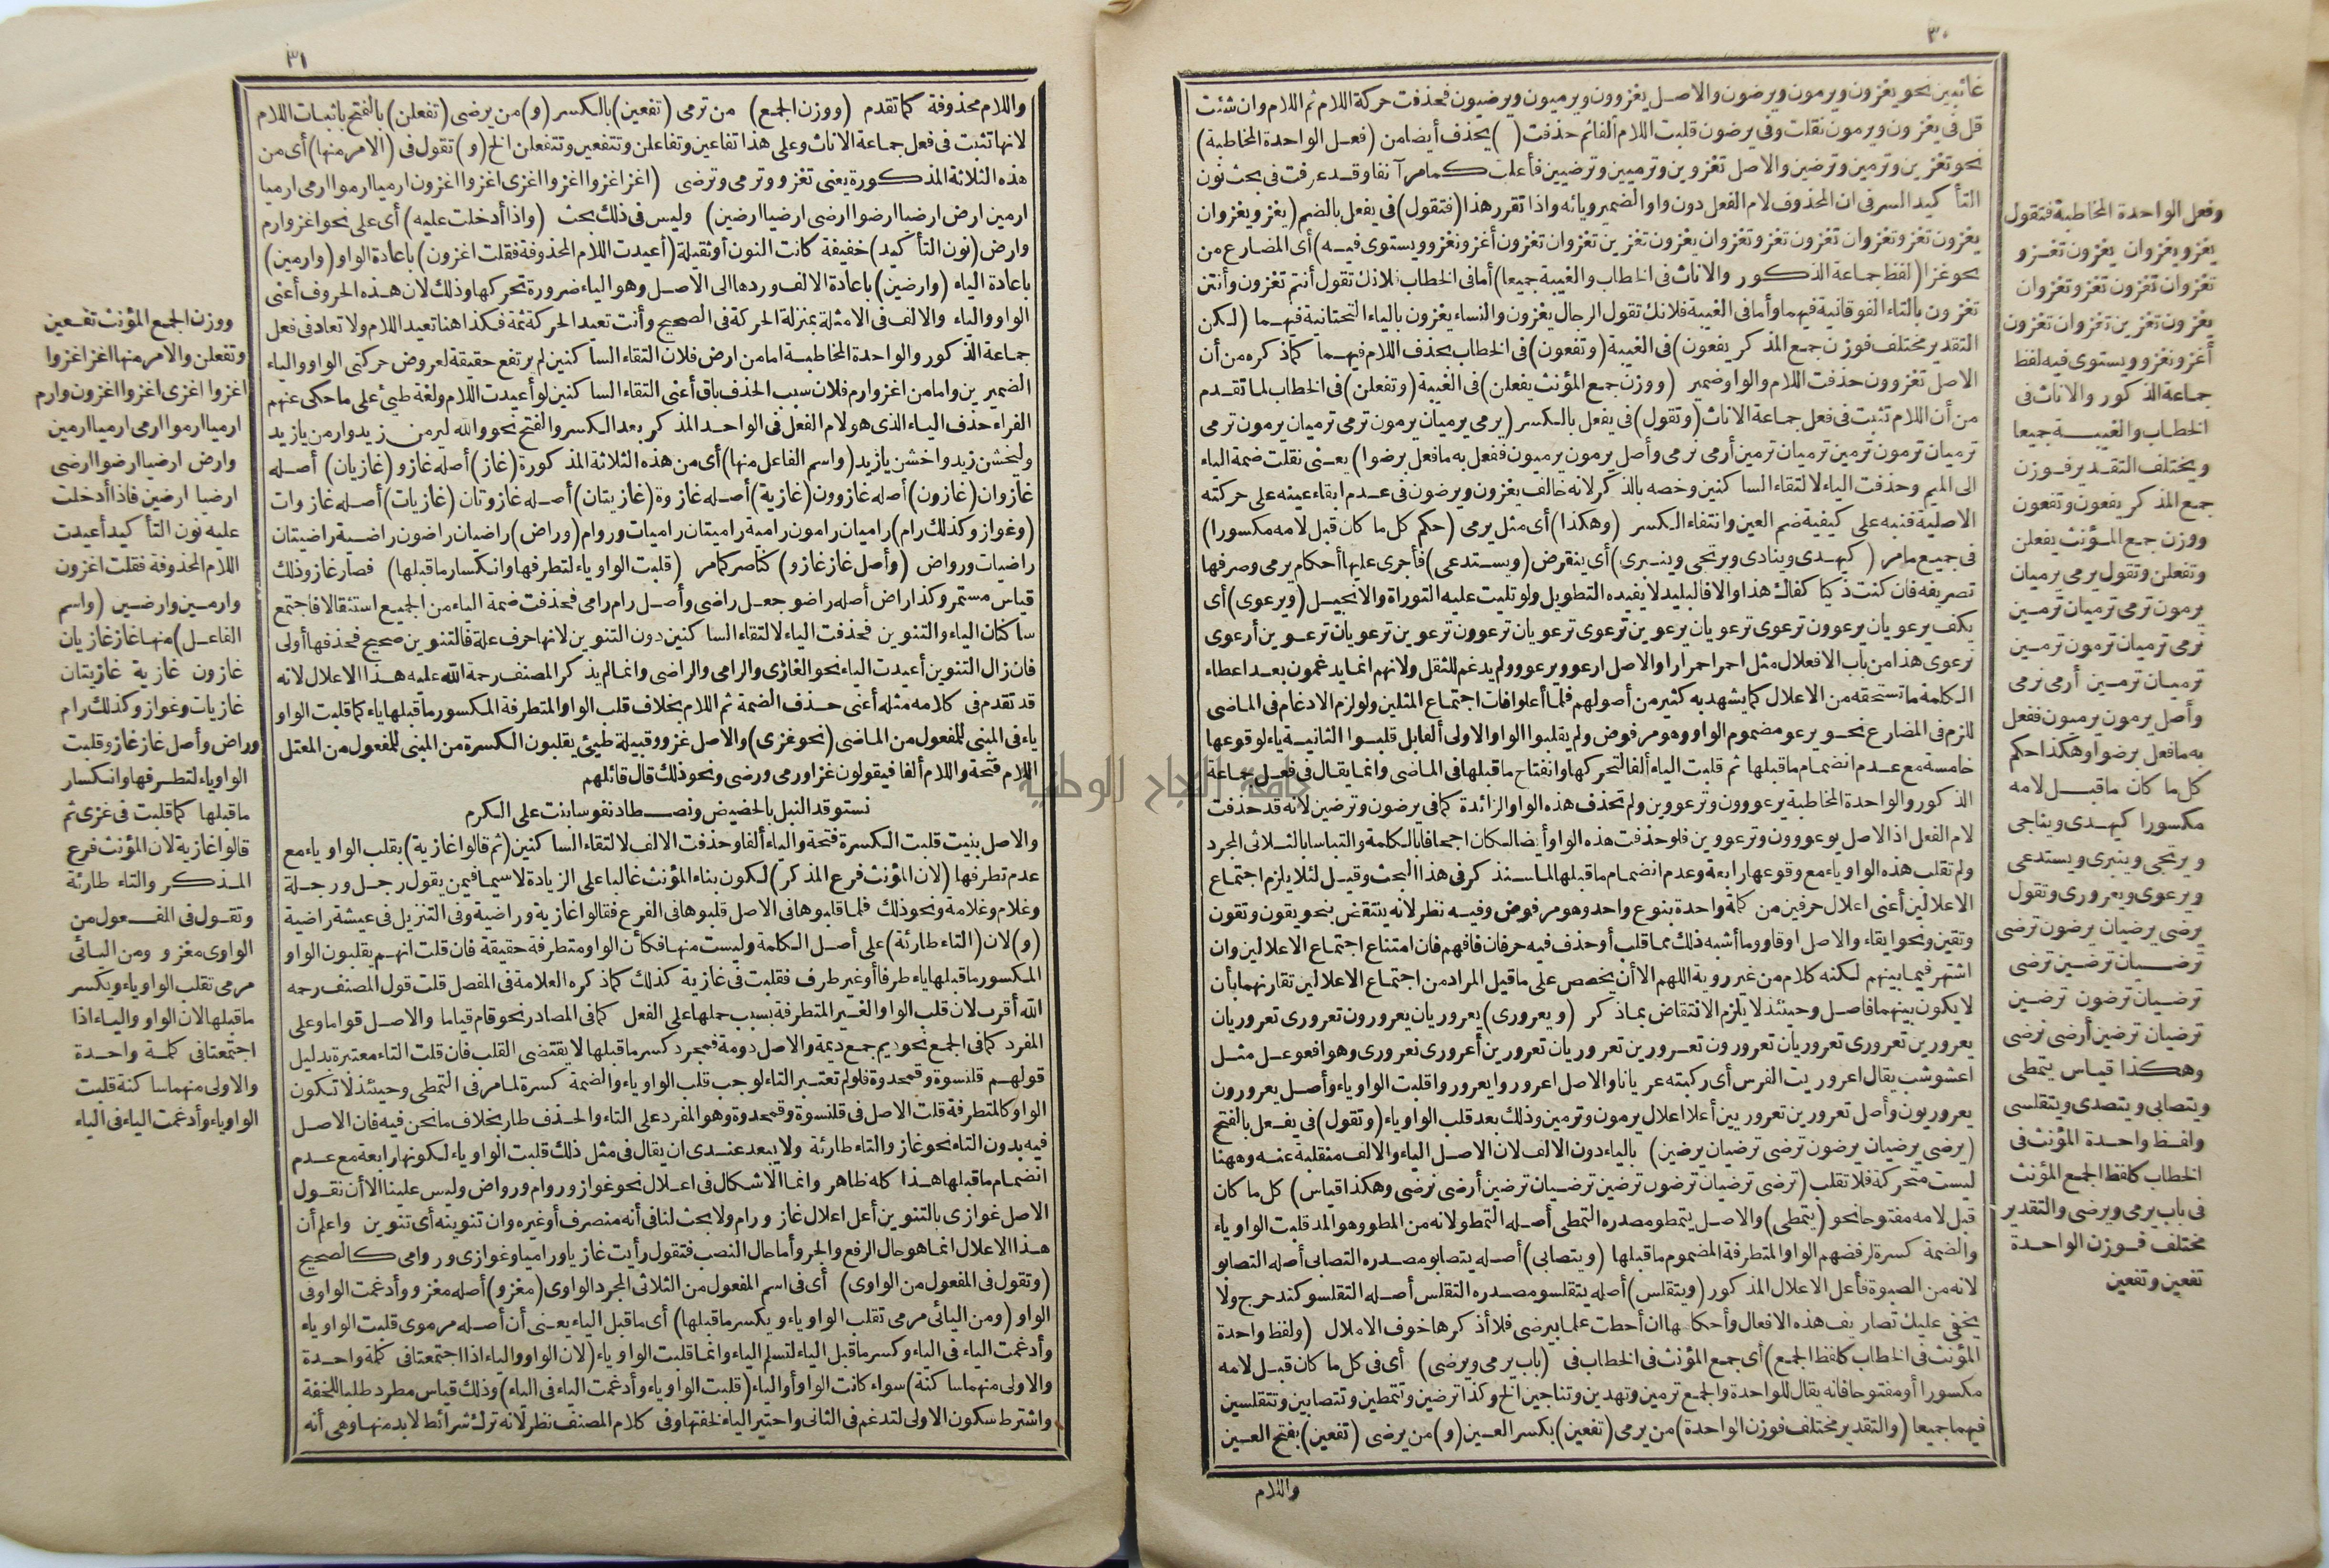 ٣٠
غائبين نحو يغزون ويرمون ويرضون والاصل يغزوون ويرميون ويرضيون فحذفت حركة اللام ثم اللام وان شئت
قل فى يغزون ويرمون نقلت وفى يرضون قلبت اللام ألفا ثم حذفت ( ) يحذف أيضا من (فعل الواحدة المخاطبة)
نحو تغزين وترمين وترضين والاصل تغزوين وترميين وترضيين فأعلت كما مر آنفا وقد عرفت فى بحث نون
التأكيد السر فى ان المحذوف لام الفعل دون واو الضمير ويائه واذا تقرر هذا (فتقول) فى يفعل بالضم (يغزو يغزوان
يغزون تغزو تغزوان تغزون تغزو تغزوان يغزون تغزين تغزوان تغزون أغزو نغزو ويستوى فيه) أى المضارع من
نحو غزا (لفظ جماعة الذكور والاناث فى الخطاب والغيبة جميعا) أما فى الخطاب فلانك تقول أنتم تغزون وأنتن
تغزون بالتاء الفوقانية فيهما وأما فى الغيبة فلانك تقول الرجال يغزون والنساء يغزون بالياء التحتانية فيهما (لكن
التقدير مختلف فوزن جمع المذكر يفعون) فى الغيبة (وتفعون) فى الخطاب بحذف اللام فيهما كما ذكره من أن
الاصل تغزوون حذفت اللام والواو ضمير (ووزن جمع المؤنث يفعلن) فى الغيبة (وتفعلن) فى الخطاب لما تقدم
من أن اللام تثبت فى فعل جماعة الاناث (وتقول) فى يفعل بالكسر (يرمى يرميان يرمون ترمى ترميان يرمون ترمى
ترميان ترمون ترمين ترميان ترمين أرمى نرمى وأصل يرمون يرميون ففعل به ما فعل برضوا) يعنى نقلت ضمة الياء
الى الميم وحذفت الياء لالتقاء الساكنين وخصه بالذكر لانه خالف يغزون ويرضون فى عدم ابقاء عينه على حركته
الاصلية فنبه على كيفية ضم العين وانتفاء الكسر (وهكذا) أى مثل يرمى (حكم كل ما كان قبل لامه مكسورا)
فى جميع ما مر (كيهدى وينادى ويرتجى وينبرى) أى يتعرض (ويستدعى) فأجرى عليها أحكام يرمى وصرفها
تصريفه فان كنت ذكيا كفاك هذا والا فالبليد لا يفيده التطويل ولو تليت عليه التوراة والانجيل (ويرعوى) أى
يكف يرعويان يرعوون ترعوى ترعويان يرعوين ترعوى ترعويان ترعوون ترعوين ترعويان ترعوين أرعوى
نرعوى هذا من باب الافعلال مثل احمر احمرارا والاصل ارعوو يرعوو ولم يدغم للثقل ولانهم انما يدغمون بعد اعطاء
الكلمة ما تستحقه من الاعلال كما يشهد به كثير من أصولهم فلما أعلوا فات اجتماع المثلين ولو لزم الادغام فى الماضى
للزم فى المضارع نحو يرعو مضموم الواو وهو مرفوض ولم يقلبوا الواو الاولى ألفا بل قلبوا الثانية ياء لوقوعها
خامسة مع عدم انضمام ما قبلها ثم قلبت الياء ألفا لتحركها وانفتاح ما قبلها فى الماضى وانما يقال فى فعل جماعة
الذكور والواحدة المخاطبة يرعوون وترعوين ولم تحذف هذه الواو الزائدة كما فى يرضون وترضين لانه قد حذفت
لام الفعل اذ الاصل يرعووون وترعووين فلو حذفت هذه الواو أيضا لكان اجحافا بالكلمة والتباسا بالثلاثى المجرد
ولم تقلب هذه الواو ياء مع وقوعها رابعة وعدم انضمام ما قبلها لما سنذكر فى هذا البحث وقيل لئلا يلزم اجتماع
الاعلالين أعنى اعلال حرفين من كلمة واحدة بنوع واحد وهو مرفوض وفيه نظر لانه ينتقض بنحو يقون وتقون
وتقين ونحو ايقاء والاصل اوقاو وما أشبه ذلك مما قلب أو حذف فيه حرفان فافهم فان امتناع اجتماع الاعلالين وان
اشتهر فيما بينهم لكنه كلام من غير روية اللهم الا أن يخصص على ما قيل المراد من اجتماع الاعلالين تقارنهما بأن
لا يكون بينهما فاصل وحينئذ لا يلزم الانتقاض بما ذكر (ويعرورى) يعروريان يعرورون تعرورى تعروريان
يعرورين تعرورى تعروريان تعرورون تعرورين تعروريان تعرورين أعرورى نعرورى وهو افعوعل مثل
اعشوشب يقال اعروريت الفرس أى ركبته عريانا والاصل اعرورو ايعرورو اقلبت الواو ياء وأصل يعرورون
يعروريون وأصل تعرورين تعروريين أعلا اعلال يرمون وترمين وذلك بعد قلب الواو ياء (وتقول) فى يفعل بالفتح
(يرضى يرضيان يرضون ترضى ترضيان يرضين) بالياء دون الالف لان الاصل الياء والالف منقلبة عنه وههنا
ليست متحركة فلا تقلب (ترضى ترضيان ترضون ترضين ترضيان ترضين أرضى نرضى وهكذا قياس) كل ما كان
قبل لامه مفتوحا نحو (يتمطى) والاصل يتمطو مصدره التمطى أصله التمطو لانه من المطو وهو المد قلبت الواو ياء
والضمة كسرة لرفضهم الواو المتطرفة المضموم ما قبلها (ويتصابى) أصله يتصابو مصدره التصابى أصله التصابو
لانه من الصبوة فأعل الاعلال المذكور (ويتقلس) أصله يتقلسو مصدره التقلس أصله التقلسو كتدحرج ولا
يخفى عليك تصاريف هذه الافعال وأحكامها ان أحطت علما بيرضى فلا أذكرها خوف الاملال (ولفظ واحدة
المؤنث فى الخطاب كلفظ الجمع) أى جمع المؤنث فى الخطاب فى (باب يرمى ويرضى) أى فى كل ما كان قبل لامه
مكسورا أو مفتوحا فانه يقال للواحدة والجمع ترمين وتهدين وتناجين الخ وكذا ترضين وتتمطين وتتصابين وتتقلسين
فيهما جميعا (والتقدير مختلف فوزن الواحدة) من يرمى (تفعين) بكسر العين (و) من يرضى (تفعين) بفتح العين
واللام
وفعل الواحدة المخاطبة فتقول
يغزو يغزوان يغزون تغزو
تغزوان تغزون تغزو تغزوان
يغزون تغزين تغزوان تغزون
أغزو نغزو ويستوى فيه لفظ
جماعة الذكور والاناث فى
الخطاب والغيبة جميعا
ويختلف التقدير فوزن
جمع المذكر يفعون وتفعون
ووزن جمع المؤنث يفعلن
وتفعلن وتقول يرمى يرميان
يرمون ترمى ترميان ترمين
ترمى ترميان ترمون ترمين
ترميان ترمين أرمى نرمى
وأصل يرمون يرميون ففعل
به ما فعل برضوا وهكذا حكم
كل ما كان ماقبل لامه
مكسورا كيهدى ويناجى
ويرتجى وينبرى ويستدعى
ويرعوى ويعرورى وتقول
يرضى يرضيان يرضون ترضى
ترضيان ترضين ترضى
ترضيان ترضون ترضين
ترضيان ترضين أرضى نرضى
وهكذا قياس يتمطى
ويتصابى ويتصدى ويتقلسى
ولفظ واحدة المؤنث فى
الخطاب كلفظ الجمع المؤنث
فى باب يرمى ويرضى والتقدير
مختلف فوزن الواحدة
تفعين وتفعين
٣١
واللام محذوفة كما تقدم (ووزن الجمع) من ترمى (تفعين) بالكسر (و) من يرضى (تفعلن) بالفتح باثبات اللام
لانها تثبت فى فعل جماعة الاناث وعلى هذا تفاعين وتفاعلن وتتفعين وتتفعلن الخ (و) تقول فى (الامر منها) أى من
هذه الثلاثة المذكورة يعنى تغزو وترمى وترضى (اغز اغزوا اغزوا اغزى اغزوا اغزون ارميا ارموا ارمى ارميا
ارمين ارض ارضيا ارضوا ارضى ارضيا ارضين) وليس فى ذلك بحث (واذا أدخلت عليه) أى على نحو اغز وارم
وارض (نون التأكيد) خفيفة كانت النون أو ثقيلة (أعيدت اللام المحذوفة فقلت اغزون) باعادة الواو (وارمين)
باعادة الياء (وارضين) باعادة الالف وردها الى الاصل وهو الياء ضرورة تحركها وذلك لان هذه الحروف أعنى
الواو والياء والالف فى الامثلة بمنزلة الحركة فى الصحيح وأنت تعيد الحركة ثمة فكذا هنا تعيد اللام ولا تعاد فى فعل
جماعة الذكور والواحدة المخاطبة اما من ارض فلان التقاء الساكنين لم يرتفع حقيقة لعروض حركتى الواو والياء
الضميرين واما من اغز وارم فلان سبب الحذف باق أعنى التقاء الساكنين لو أعيدت اللام ولغة طيئ على ما حكى عنهم
الفراء حذف الياء الذى هو لام الفعل فى الواحد المذكر بعد الكسر والفتح نحو والله ليرمن زيد وارمن يا زيد
وليخشن زيد واخشن يا زيد (واسم الفاعل منها) أى من هذه الثلاثة المذكورة (غاز) أصله غازو (غازيان) أصله
غازوان (غازون) أصله غازوون (غازية) أصله غازوة (غازيتان) أصله غازوتان (غازيات) أصله غازوات
(وغواز وكذلك رام) راميان رامون رامية راميتان راميات وروام (وراض) راضيان راضون راضية راضيتان
راضيات ورواض (وأصل غاز غازو) كناصر كما مر (قلبت الواو ياء لتطرفها وانكسار ما قبلها) فصار غاز وذلك
قياس مستمر وكذا راض أصله راضو جعل راضى وأصل رام رامى فحذفت ضمة الياء من الجميع استثقالا فاجتمع
ساكنان الياء والتنوين فحذفت الياء لالتقاء الساكنين دون التنوين لانها حرف علة فالتنوين صحيح فحذفها أولى
فان زال التنوين أعيدت الياء نحو الغازى والرامى والراضى وانما لم يذكر المصنف رحمة الله عليه هذا الاعلال لانه
قد تقدم فى كلامه مثله أعنى حذف الضمة ثم اللام بخلاف قلب الواو المتطرفة المكسور ما قبلها ياء كما قلبت الواو
ياء فى المبنى للمفعول من الماضى (نحو غزى) والاصل غزو وقبيلة طيئ يقلبون الكسرة من المبنى للمفعول من المعتل
اللام فتحة واللام ألفا فيقولون غزا ورمى ورضى ونحو ذلك قال قائلهم
نستوقد النبل بالحضيض ونصطاد نفوسا بنت على الكرم
والاصل بنيت قلبت الكسرة فتحة والياء ألفا وحذفت الالف لالتقاء الساكنين (ثم قالوا غازية) بقلب الواو ياء مع
عدم تطرفها (لان المؤنث فرع المذكر) لكون بناء المؤنث غالبا على الزيادة لاسيما فيمن يقول رجل ورجلة
وغلام وغلامة ونحو ذلك فلما قلبوها فى الاصل قلبوها فى الفرع فقالوا غازية وراضية وفى التنزيل فى عيشة راضية
(و) لان (التاء طارئة) على أصل الكلمة وليست منها فكأن الواو متطرفة حقيقة فان قلت انهم يقلبون الواو
المكسور ما قبلها ياء طرفا أو غير طرف فقلبت فى غازية كذلك كما ذكره العلامة فى المفصل قلت قول المصنف رحمه
الله أقرب لان قلب الواو الغير المتطرفة بسبب حملها على الفعل كما فى المصادر نحو قام قياما والاصل قواما وعلى
المفرد كما فى الجمع نحو ديم جمع ديمة والاصل دومة فمجرد كسر ما قبلها لا يقتضى القلب فان قلت التاء معتبرة بدليل
قولهم قلنسوة وقمحدوة فلو لم تعتبر التاء لوجب قلب الواو ياء والضمة كسرة لما مر فى التمطى وحينئذ لا تكون
الواو كالمتطرفة قلت الاصل فى قلنسوة وقمحدوة وهو المفرد على التاء والحذف طار بخلاف ما نحن فيه فان الاصل
فيه بدون التاء نحو غاز والتاء طارئة ولا يبعد عندى ان يقال فى مثل ذلك قلبت الواو ياء لكونها رابعة مع عدم
انضمام ما قبلها هذا كله ظاهر وانما الاشكال فى اعلال نحو غواز وروام ورواض وليس علينا الا أن نقول
الاصل غوازى بالتنوين أعل اعلال غاز ورام ولا بحث لنا فى أنه منصرف أو غيره وان تنوينه أى تنوين واعلم أن
هذا الاعلال انما هو حال الرفع والجر وأما حال النصب فتقول رأيت غازيا وراميا وغوازى وروامى كالصحيح
(وتقول فى المفعول من الواوى) أى فى اسم المفعول من الثلاثى المجرد الواوى (مغزو) أصله مغزوو وأدغمت الواو فى
الواو (ومن اليائى مرمى تقلب الواو ياء ويكسر ما قبلها) أى ما قبل الياء يعنى أن أصله مرموى قلبت الواو ياء
وأدغمت الياء فى الياء وكسر ما قبل الياء لتسلم الياء وانما قلبت الواو ياء (لان الواو والياء اذا اجتمعتا فى كلمة واحدة
والاولى منهما ساكنة) سواء كانت الواو أو الياء (قلبت الواو ياء وأدغمت الياء فى الياء) وذلك قياس مطرد طلبا للخفة
واشترط سكون الاولى لتدغم فى الثانى واختير الياء لخفتها وفى كلام المصنف نظر لانه ترك شرائط لابد منها وهى أنه
ووزن الجمع المؤنث تفعين
وتفعلن والامر منها اغز اغزوا
اغزوا اغزى اغزوا اغزون وارم
ارميا ارموا ارمى ارميا ارمين
وارض ارضيا ارضوا ارضى
ارضيا ارضين فاذا أدخلت
عليه نون التأكيد أعيدت
اللام المحذوفة فقلت اغزون
وارمين وارضين (واسم
الفاعل) منها غاز غازيان
غازون غازية غازيتان
غازيات وغواز وكذلك رام
وراض وأصل غاز غازو قلبت
الواو ياء لتطرفها وانكسار
ماقبلها كما قلبت فى غزى ثم
قالوا غازية لان المؤنث فرع
المذكر والتاء طارئة
وتقول فى المفعول من
الواوى مغزو ومن اليائى
مرمى تقلب الواو ياء ويكسر
ماقبلها لان الواو والياء اذا
اجتمعتا فى كلمة واحدة
والاولى منهما ساكنة قلبت
الواو ياء وأدغمت الياء فى الياء
جامعة النجاح الوطنية